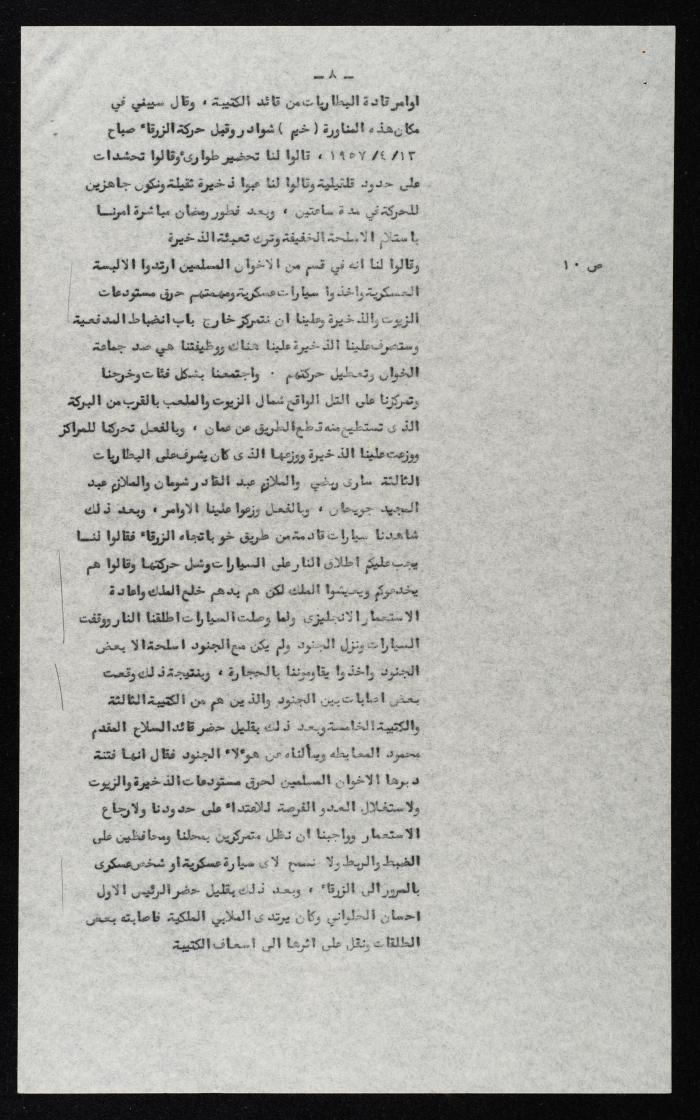 - ٨ -
اوامر قادة البطاريات من قائد الكتيبة ، وقال سيبني في
مكان هذه المناورة ( خيم ) شوادر وقبل حركة الزرقاء صباح
١٩٥٧/٤/١٣ ، قالوا لنا تحضير طوارىء وقالوا تحشدات
على حدود قلقيلية وقالوا لنا عبوا ذخيرة ثقيلة ونكون جاهزين
للحركة في مدة ساعتين ، وبعد فطور رمضان مباشرة امرنسا
باستلام الاسلحة الخفيفة وترك تعبئة الذخيرة
ص ١٠
وقالوا لنا انه في قسم من الاخوان المسلمين ارتدوا الالبسة
العسكرية واخذوا سيارات عسكرية ومهمتهم حرق مستودعات
الزيوت والذخيرة وعلينا ان نتمركز خارج باب انضباط المدفعية
وستصرف علينا الذخيرة علينا هناك ووظيفتنا هي صد جماعة
الخوان وتعطيل حركتهم . واجتمعنا بشكل فئات وخرجنا
وتمركزنا على التل الواقع شمال الزيوت والملعب بالقرب من البركة
الذى تستطيع منه قطع الطريق عن عمان ، وبالفعل تحركنا للمراكز
ووزعت علينا الذخيرة ووزعها الذى كان يشرف على البطاريات
الثالثة سارى ريضي والملازم عبد القادر شومان والملازم عبد
المجيد جويحان ، وبالفعل وزعوا علينا الاوامر ، وبعد ذلك
شاهدنا سيارات قادمة من طريق خو باتجاه الزرقاء فقالوا لنسا
يجب عليكم اطلاق النار على السيارات وشل حركتها وقالوا هم
يخدعوكم ويعيشوا الملك لكن هم بدهم خلع الملك واعادة
الاستعمار الانجليزى ولما وصلت السيارات اطلقنا النار ووقفت
السيارات ونزل الجنود ولم يكن مع الجنود اسلحة الا بعض
الجنود واخذوا يقاومونا بالحجارة ، وبنتيجة ذلك وقعت
بعض اصابات بين الجنود والذين هم من الكتيبة الثالثة
والكتيبة الخامسة وبعد ذلك بقليل حضر قائد السلاح المقدم
محمود المعايطه وسألناه عن هوءلاء الجنود فقال انها فتنة
دبرها الاخوان المسلمين لحرق مستودعات الذخيرة والزيوت
ولاستغلال العدو الفرصة للاعتداء على حدودنا ولارجاع
الاستعمار وواجبنا ان نظل متمركزين بمحلنا ومحافظين على
الضبط والربط ولا نسمح لاى سيارة عسكرية او شخص عسكرى
بالمرور الى الزرقاء ، وبعد ذلك بقليل حضر الرئيس الاول
احسان الحلواني وكان يرتدى الملابي الملكية فاصابته بعض
الطلقات ونقل على اثرها الى اسعاف الكتيبة